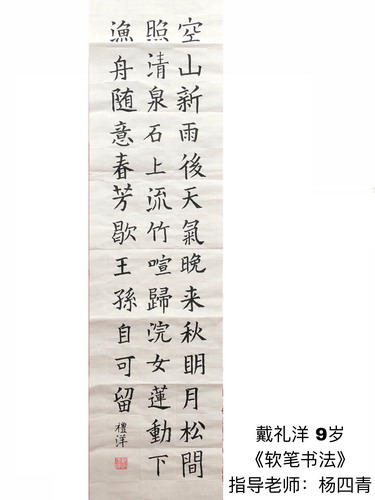 空山新雨後天氣晚来秋眀月松間
照清泉石上流竹喧歸浣女蓮動下
漁舟随意春芳歇王孫自可留
禮洋
戴礼洋 9岁
《软笔书法》
指导老师：杨四青